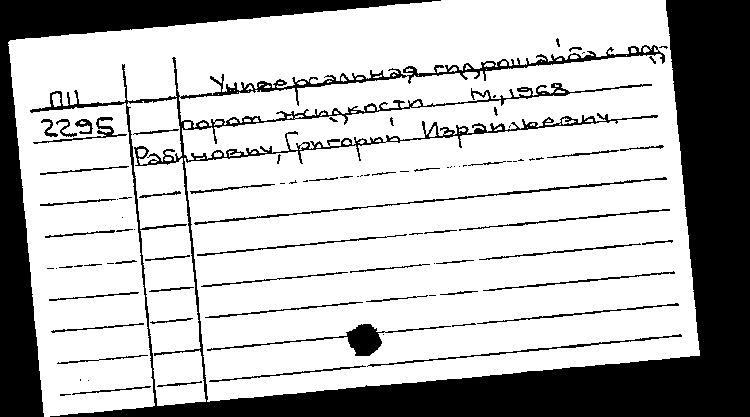 ПП Универсальная гидрошайба с под-
2295 пором жидкости М., 1968
Рабинович, Григорий Израйльевич.